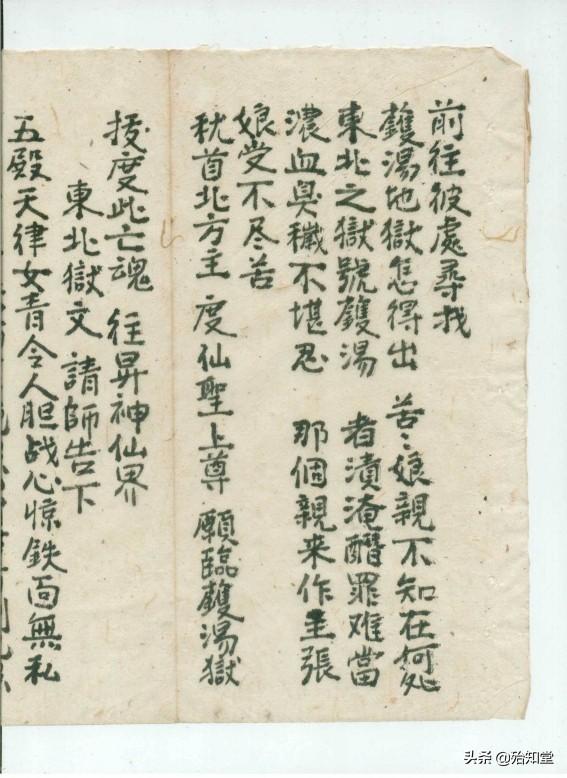 前往彼處尋找
鑊湯地獄怎得出 苦〻娘親不知在何处
東北之獄號鑊湯 者漬淹醋罪难當
濃血臭穢不堪忍 那個親来作主張
娘受不尽苦
稽首北方主 度仙聖上尊 願臨鑊湯獄
援度此亡魂 往昇神仙界
東北獄文 請師告下
五殿天律女青令人胆战心惊鉄面無私
头条 @殆知堂